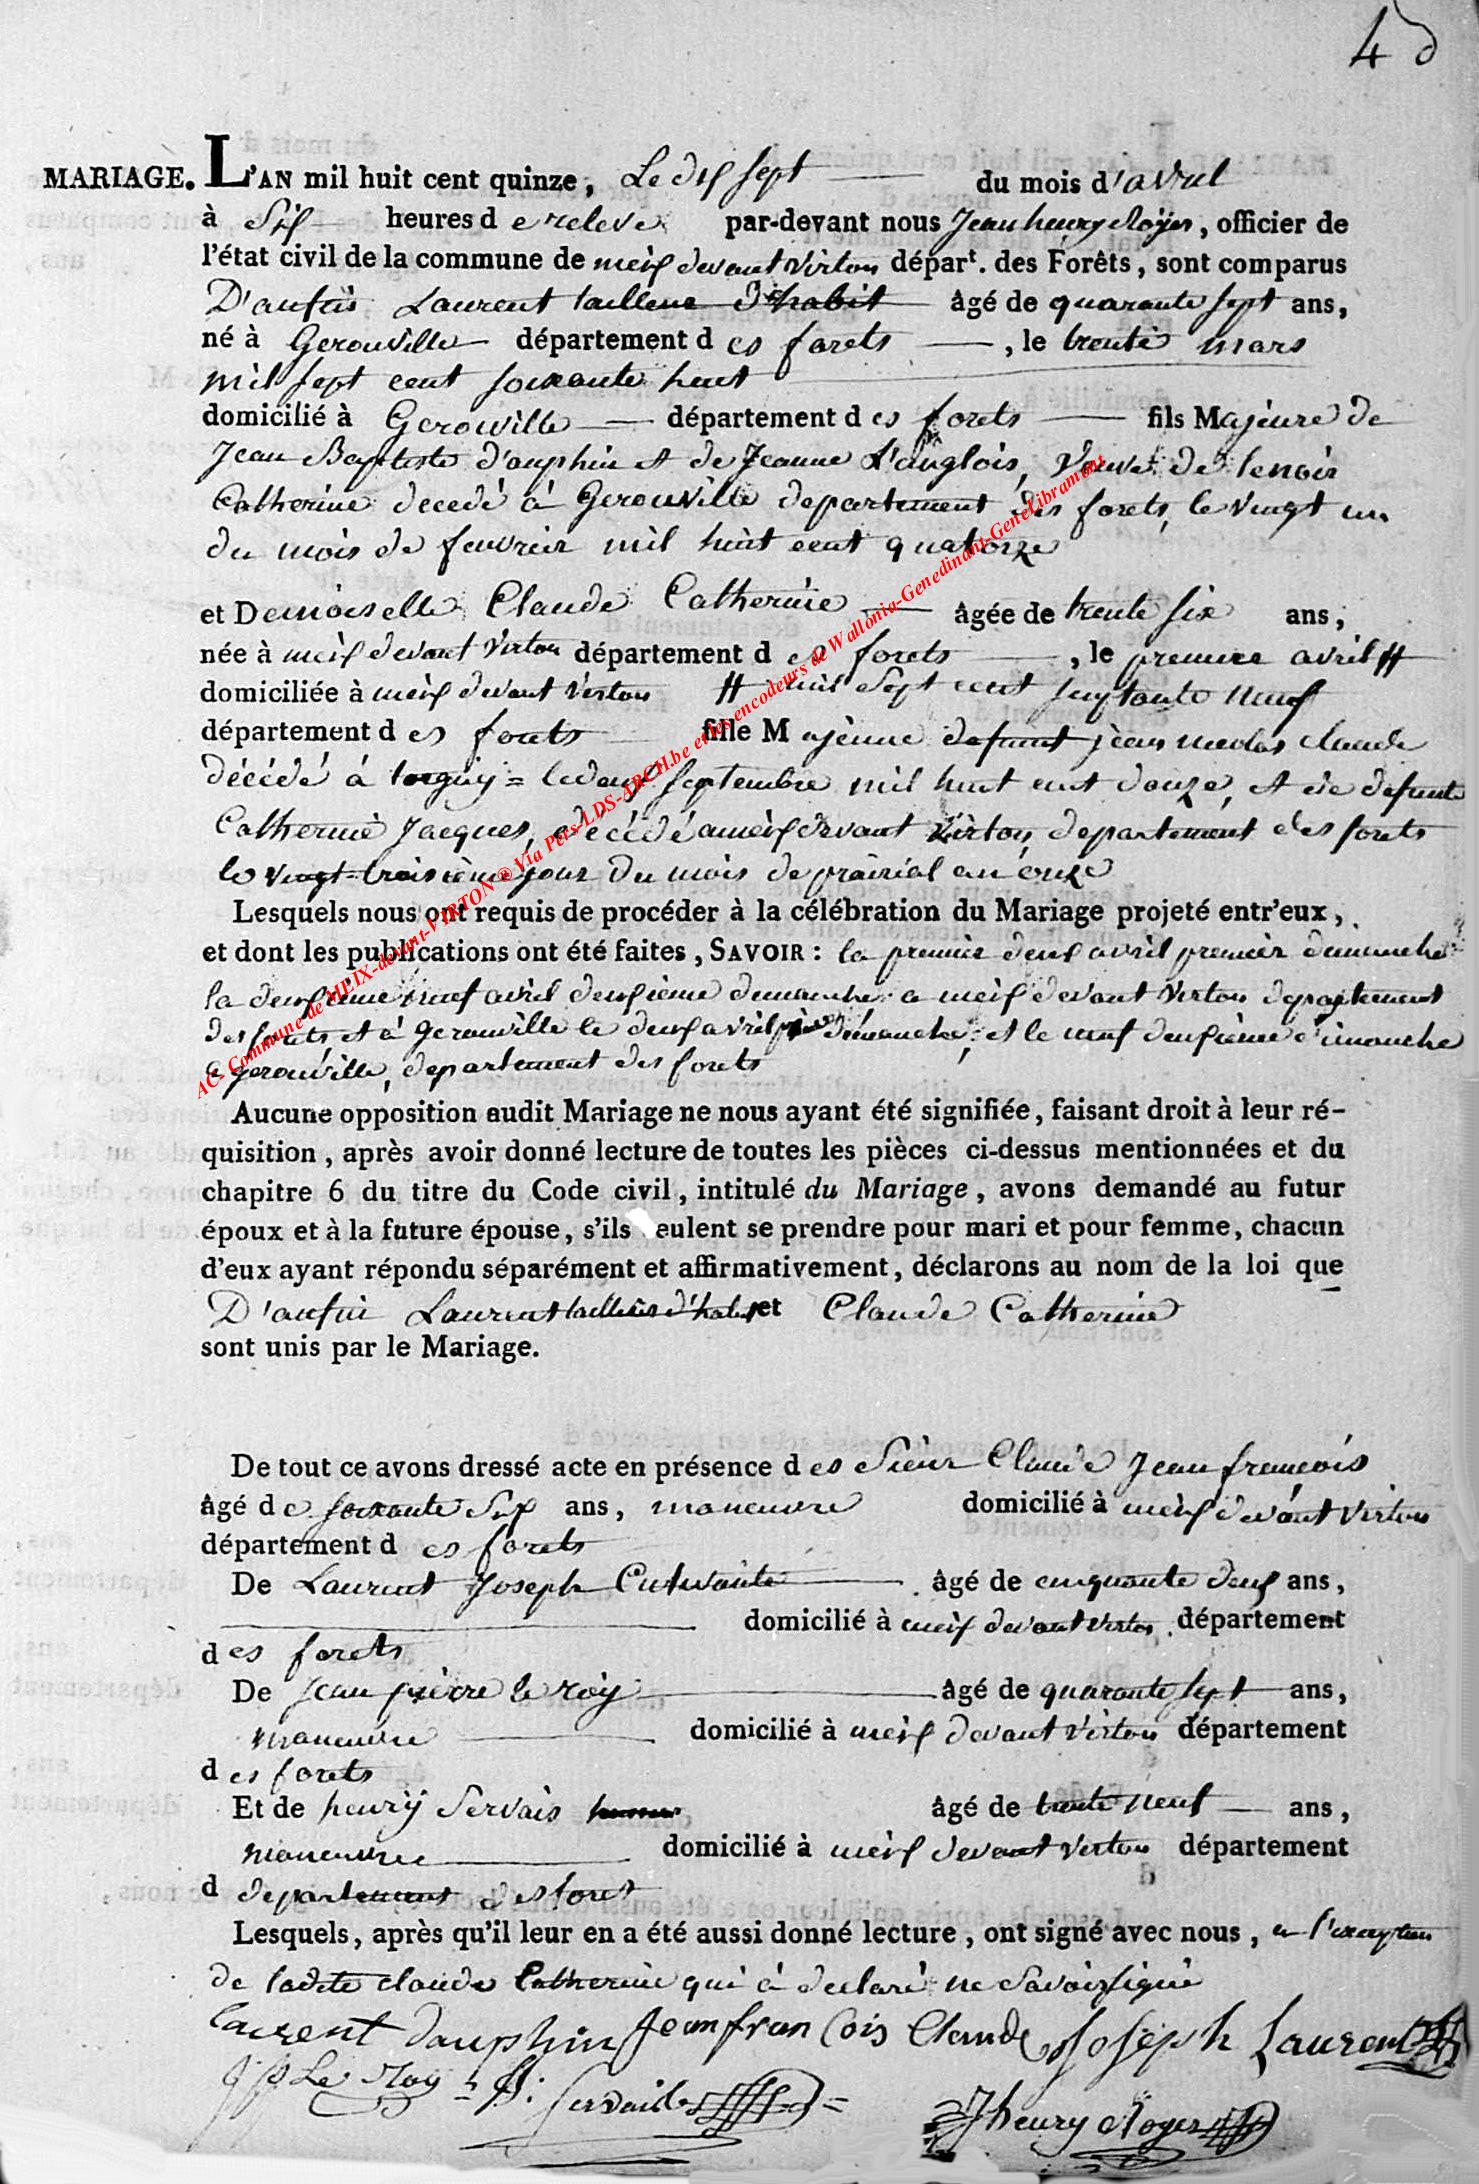 4
MARIAGE. L'AN mil huit cent quinze, Le dix sept du mois d'avril
à Six heures de releve par-devant nous Jean henry Royer, officier de
l'état civil de la commune de meix devant Virton départ. des Forêts, sont comparus
D'aufin Laurent tailleur d'habit âgé de quarante sept ans,
né à Gerouville département des forets, le trente mars
mil sept cent soixante huit
domicilié à Gerouville département des forets fils Majeure de
Jean Baptiste d'auphin et de Jeanne L'anglois, Veuve de lenoir
Catherine decedé à Gerouville departement des forets, le vingt un
du mois de fevrier mil huit cent quatorze
et Demoiselle Claude Catherine âgée de trente six ans,
née à meix devant Virton département des forets, le premier avril #
domiciliée à meix devant Virton # mil Sept cent septante neuf
département des forets fille Majeure defunt jean nicolas claude
décédé à torgny = le deux septembre mil huit cent douze, et de defunte
Catherine Jacques, décédé a meix devant Virton, departement des forets
le vingt troisième jour du mois de prairial an onze
Lesquels nous ont requis de procéder à la célébration du Mariage projeté entr'eux,
et dont les publications ont été faites, SAVOIR : la premier deux avril premier dimanche
la deuxième neuf avril deuxième dimanche a meix devant Virton departement
des forets et à Gerouville le deux avril dimanche, et le neuf deuxieme dimanche
a gerouville, departement des forets
Aucune opposition audit Mariage ne nous ayant été signifiée, faisant droit à leur ré-
quisition, après avoir donné lecture de toutes les pièces ci-dessus mentionnées et du
chapitre 6 du titre du Code civil, intitulé du Mariage, avons demandé au futur
époux et à la future épouse, s'ils veulent se prendre pour mari et pour femme, chacun
d'eux ayant répondu séparément et affirmativement, déclarons au nom de la loi que
D'aufin Laurent tailleur d'habit et Claude Catherine
sont unis par le Mariage.
De tout ce avons dressé acte en présence des Sieur Claude Jean françois
âgé de soixante Six ans, manœuvre domicilié à meix devant Virton
département des forets
De Laurent Joseph âgé de cinquante deux ans,
domicilié à meix devant Virton département
des forets
De Jean pierre le roy âgé de quarante sept ans,
manœuvre domicilié à meix devant Virton département
des forets
Et de henry Servais âgé de trente neuf ans,
manœuvre domicilié à meix devant Virton département
d departement des foret
Lesquels, après qu'il leur en a été aussi donné lecture, ont signé avec nous, a l'exception
de ladite claude Catherine qui à declaré ne Savoir signé
laurent dauphin Jean fran Cois Claude Joseph Laurent
J p Le Roy = H: Servais =
J henry Royer
AC- Commune de MEIX-devant-VIRTON ® Via Pers-LDS-ARCH.be et les encodeurs de Wallonia-Genedinant-GeneLibramont